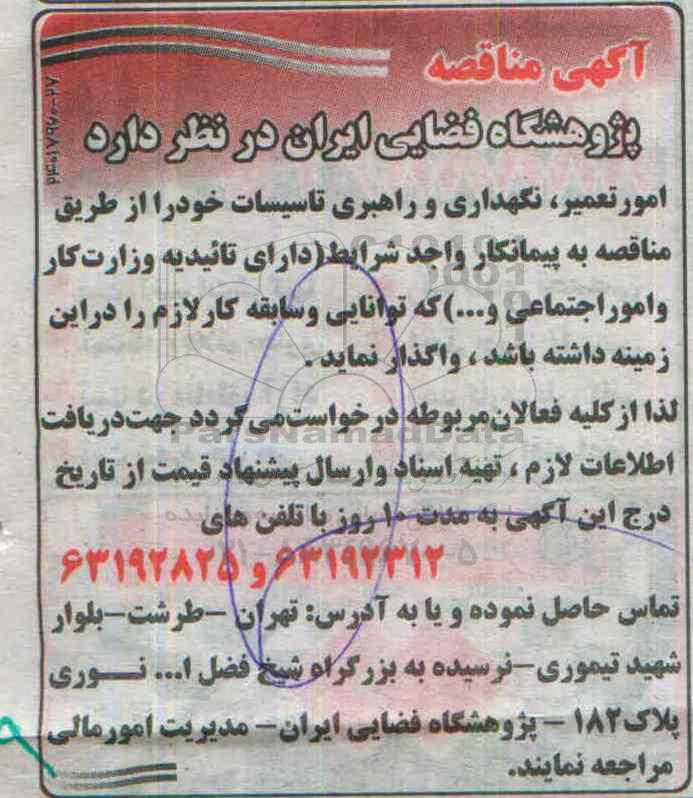 آگهی مناقصه
پژوهشگاه فضایی ایران در نظر دارد
امورتعمیر، نگهداری و راهبری تاسیسات خودرا از طریق
مناقصه به پیمانکار واجد شرایط(دارای تائیدیه وزارت‌کار
وامور‌اجتماعی و...)که توانایی وسابقه کارلازم را دراین
زمینه داشته باشد ، واگذار نماید .
لذا از کلیه فعالان‌مربوطه درخواست‌می‌گردد جهت‌دریافت
اطلاعات لازم ، تهیه اسناد وارسال پیشنهاد قیمت از تاریخ
درج این آگهی به مدت ۱۰ روز با تلفن های
۶۳۱۹۲۳۱۲ و ۶۳۱۹۲۸۲۵
تماس حاصل نموده و یا به آدرس: تهران –طرشت–بلوار
شهید تیموری–نرسیده به بزرگراه شیخ فضل ا... نـــوری
پلاک۱۸۲ – پژوهشگاه فضایی ایران– مدیریت امورمالی
مراجعه نمایند.
ParsNamadData